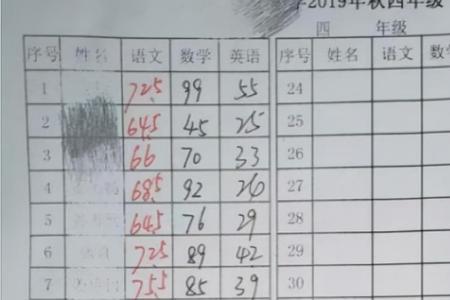 2019年秋四年级
四 年级
序号 姓名 语文 数学 英语 序号 姓名 语文 数学
1 72.5 99 55 24
2 64.5 45 25 25
3 66 70 33 26
4 68.5 92 26 27
5 64.5 76 29 28
6 72.5 89 42 29
7 75.5 85 39 30